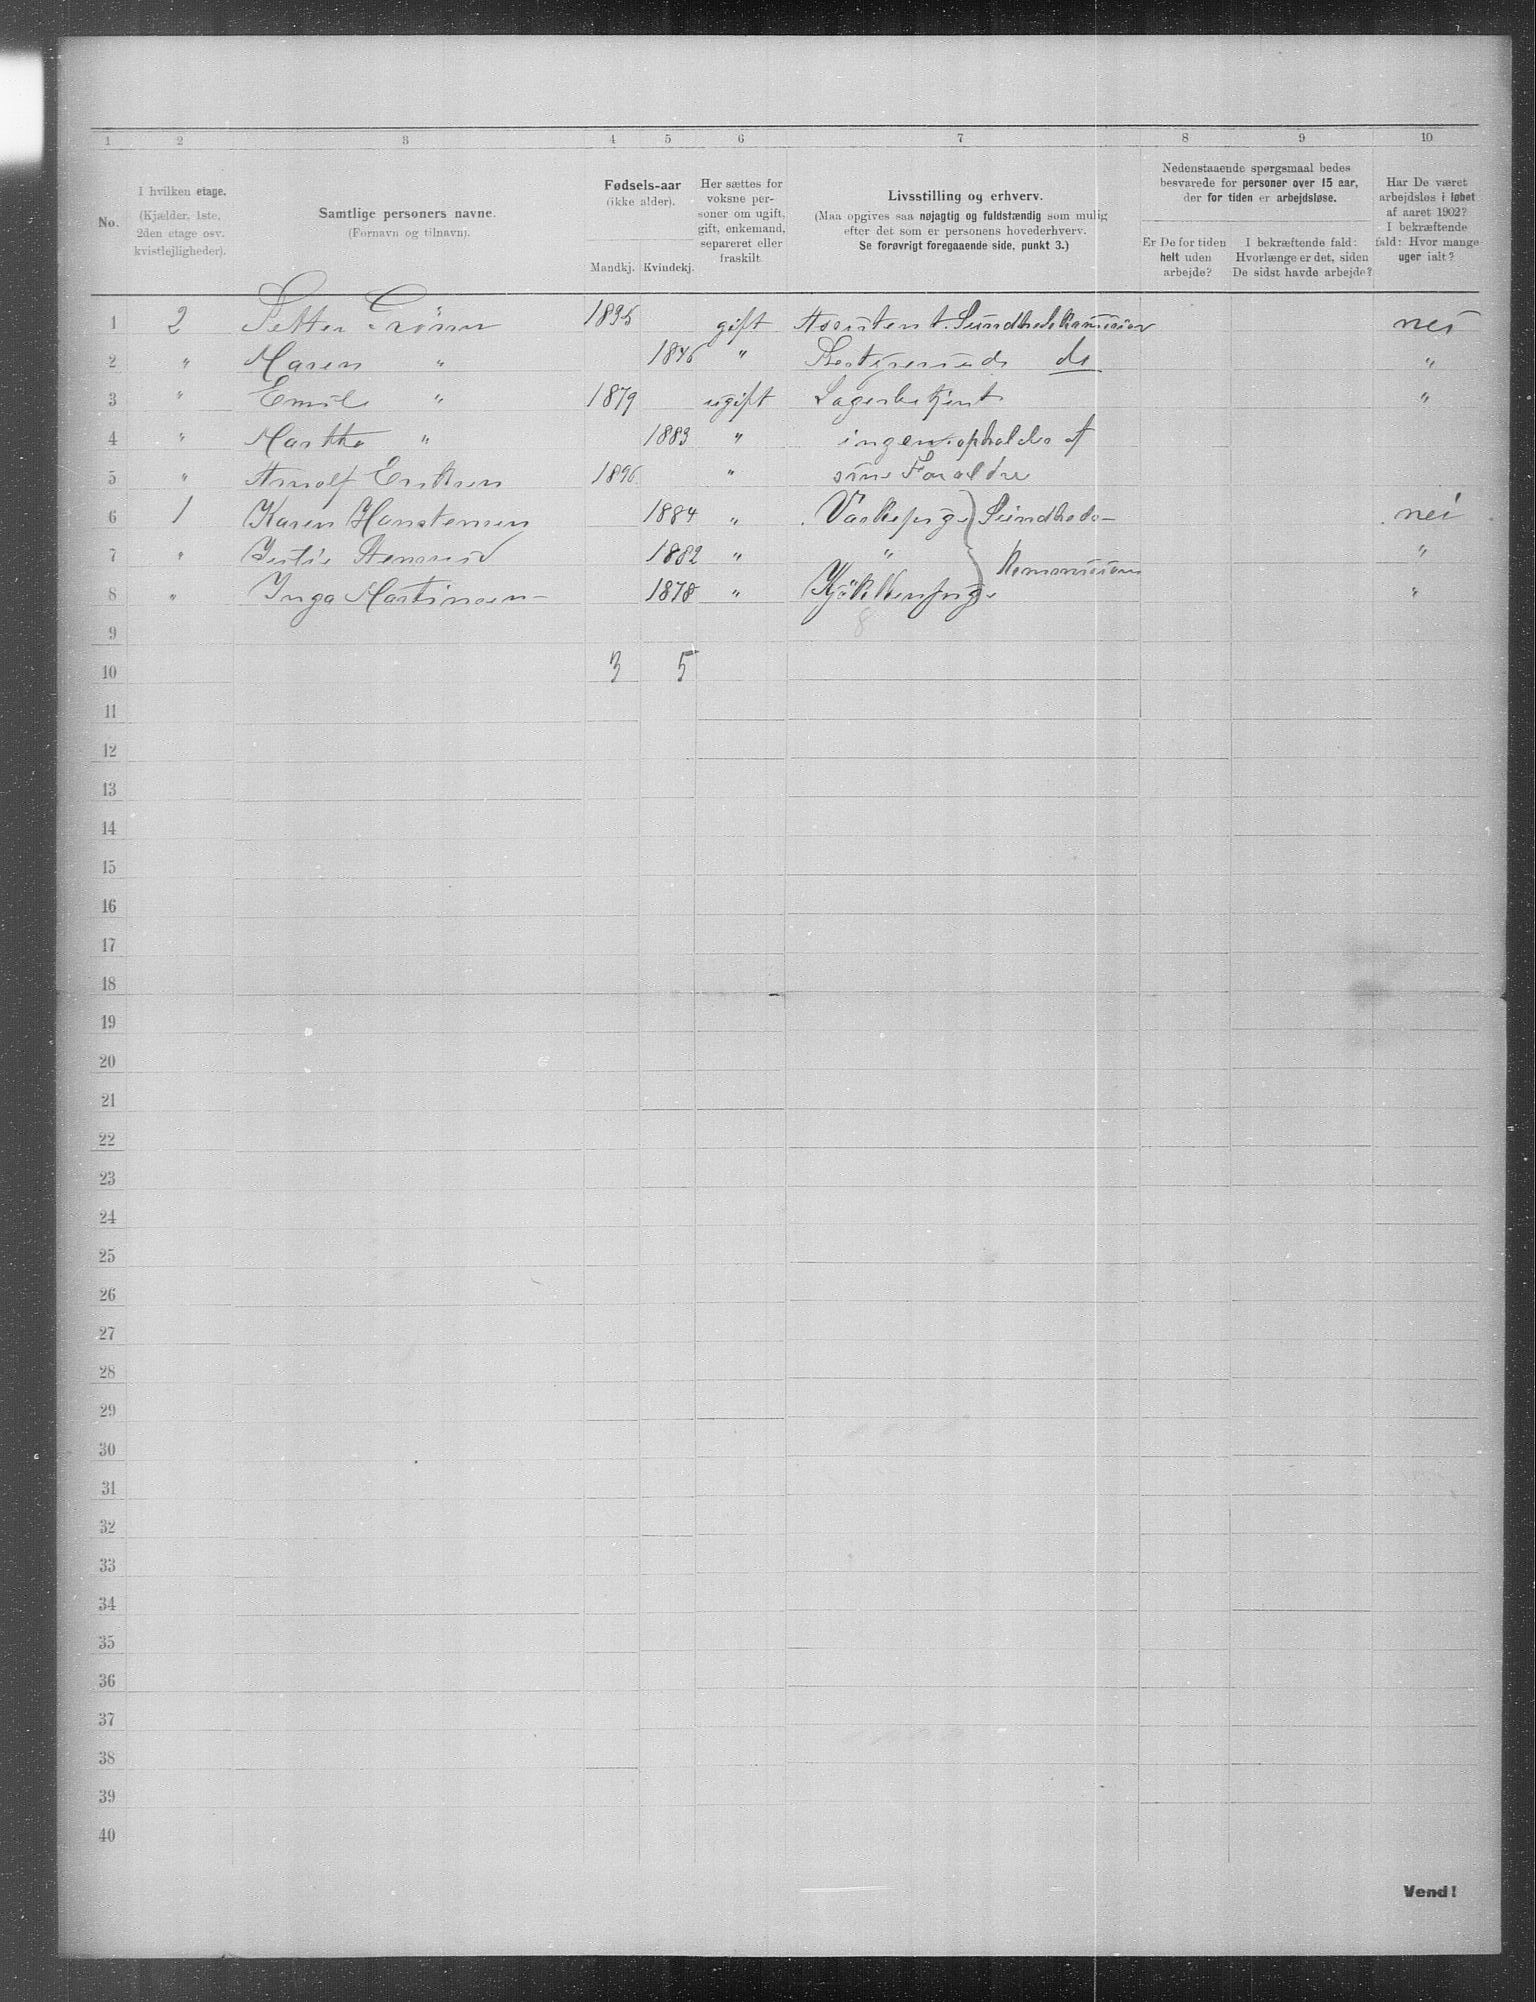 1 2 3 4 5 6 7 8 9 10
No.
I hvilken etage.
(Kjælder, 1ste,
2den etage osv.
kvistlejligheder).
Samtlige personers navne.
(Fornavn og tilnavn).
Fødsels-aar
(ikke alder).
Mandkj. Kvindekj.
Her sættes for
voksne per-
soner om ugift,
gift, enkemand,
separeret eller
fraskilt.
Livsstilling og erhverv.
(Maa opgives saa nøjagtig og fuldstændig som mulig
efter det som er personens hovederhverv.
Se forøvrigt foregaaende side, punkt 3.)
Nedenstaaende spørgsmaal bedes
besvarede for personer over 15 aar,
der for tiden er arbejdsløse.
Er De for tiden
helt uden
arbejde?
I bekræftende fald:
Hvorlænge er det, siden
De sidst havde arbejde?
Har De været
arbejdsløs i løbet
af aaret 1902?
I bekræftende
fald: Hvor mange
uger ialt?
1 2 Petter 1835 gift Assistent Sundhedskomision nei
2 " Maren " 1846 " do "
3 " Emil " 1879 ugift Lagerbetjent "
4 " Martha " 1883 " ingen opholdes af
5 " Arnolf Eriksen 1896 " sine Foraldre
6 1 Karen Hanstensen 1884 " Vaskepige Sundheds- nei
7 " 1882 " " Kommission "
8 " Inga Martinsen 1878 " Kjøkkenpige "
9 8
10 3 5
11
12
13
14
15
16
17
18
19
20
21
22
23
24
25
26
27
28
29
30
31
32
33
34
35
36
37
38
39
40
Vend!